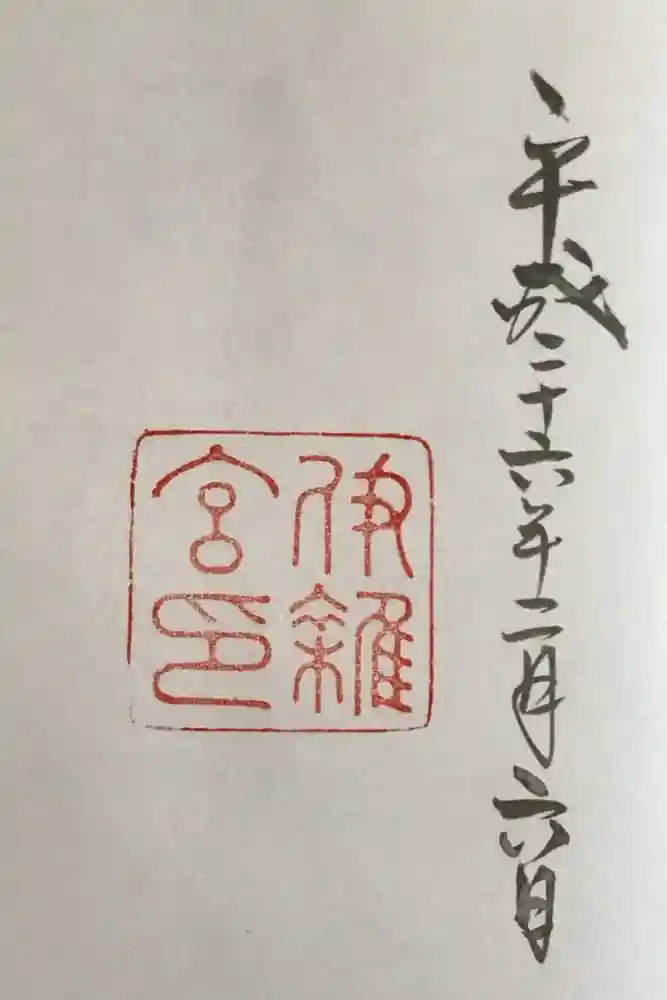 平成二十六年二月六日
伊雜
宮印